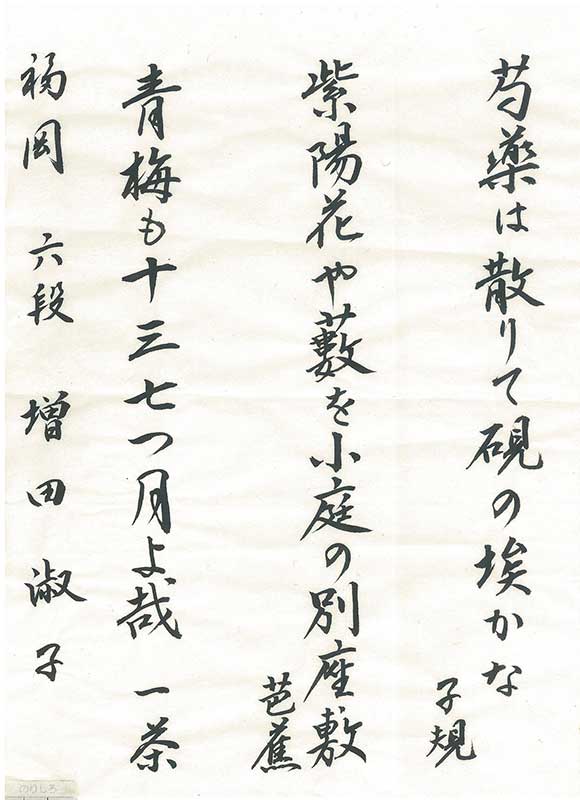 芍薬は散りて硯の埃かな
子規
紫陽花や薮を小庭の別座敷
芭蕉
青梅も十三七つ月よ哉 一茶
福岡 六段 増田淑子
のりしろ